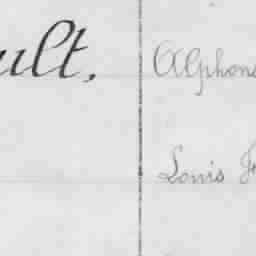 ult, Alphons
Louis J